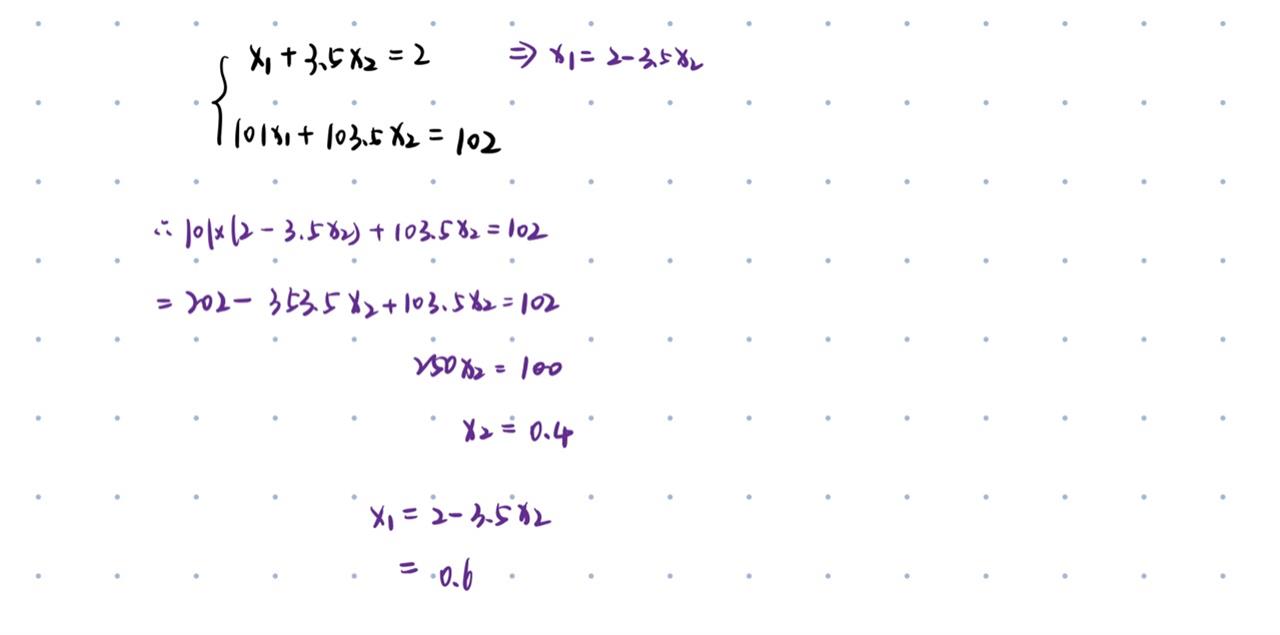 x₁ + 3.5x₂ = 2 ⇒ x₁ = 2 - 3.5x₂
101x₁ + 103.5x₂ = 102
∴ 101×(2 - 3.5x₂) + 103.5x₂ = 102
= 202 - 353.5x₂ + 103.5x₂ = 102
250x₂ = 100
x₂ = 0.4
x₁ = 2 - 3.5x₂
= 0.6